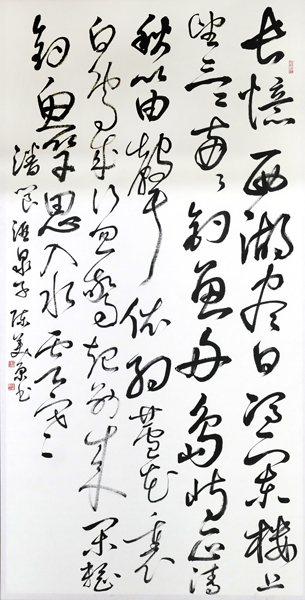 长憶西湖尽日凭阑楼上
望三三两两钓鱼舟岛屿正清
秋笛聲依约芦花里
白鸟成行忽惊起别来闲整
钓鱼竿思入水云寒
潘阆酒泉子 陈美书